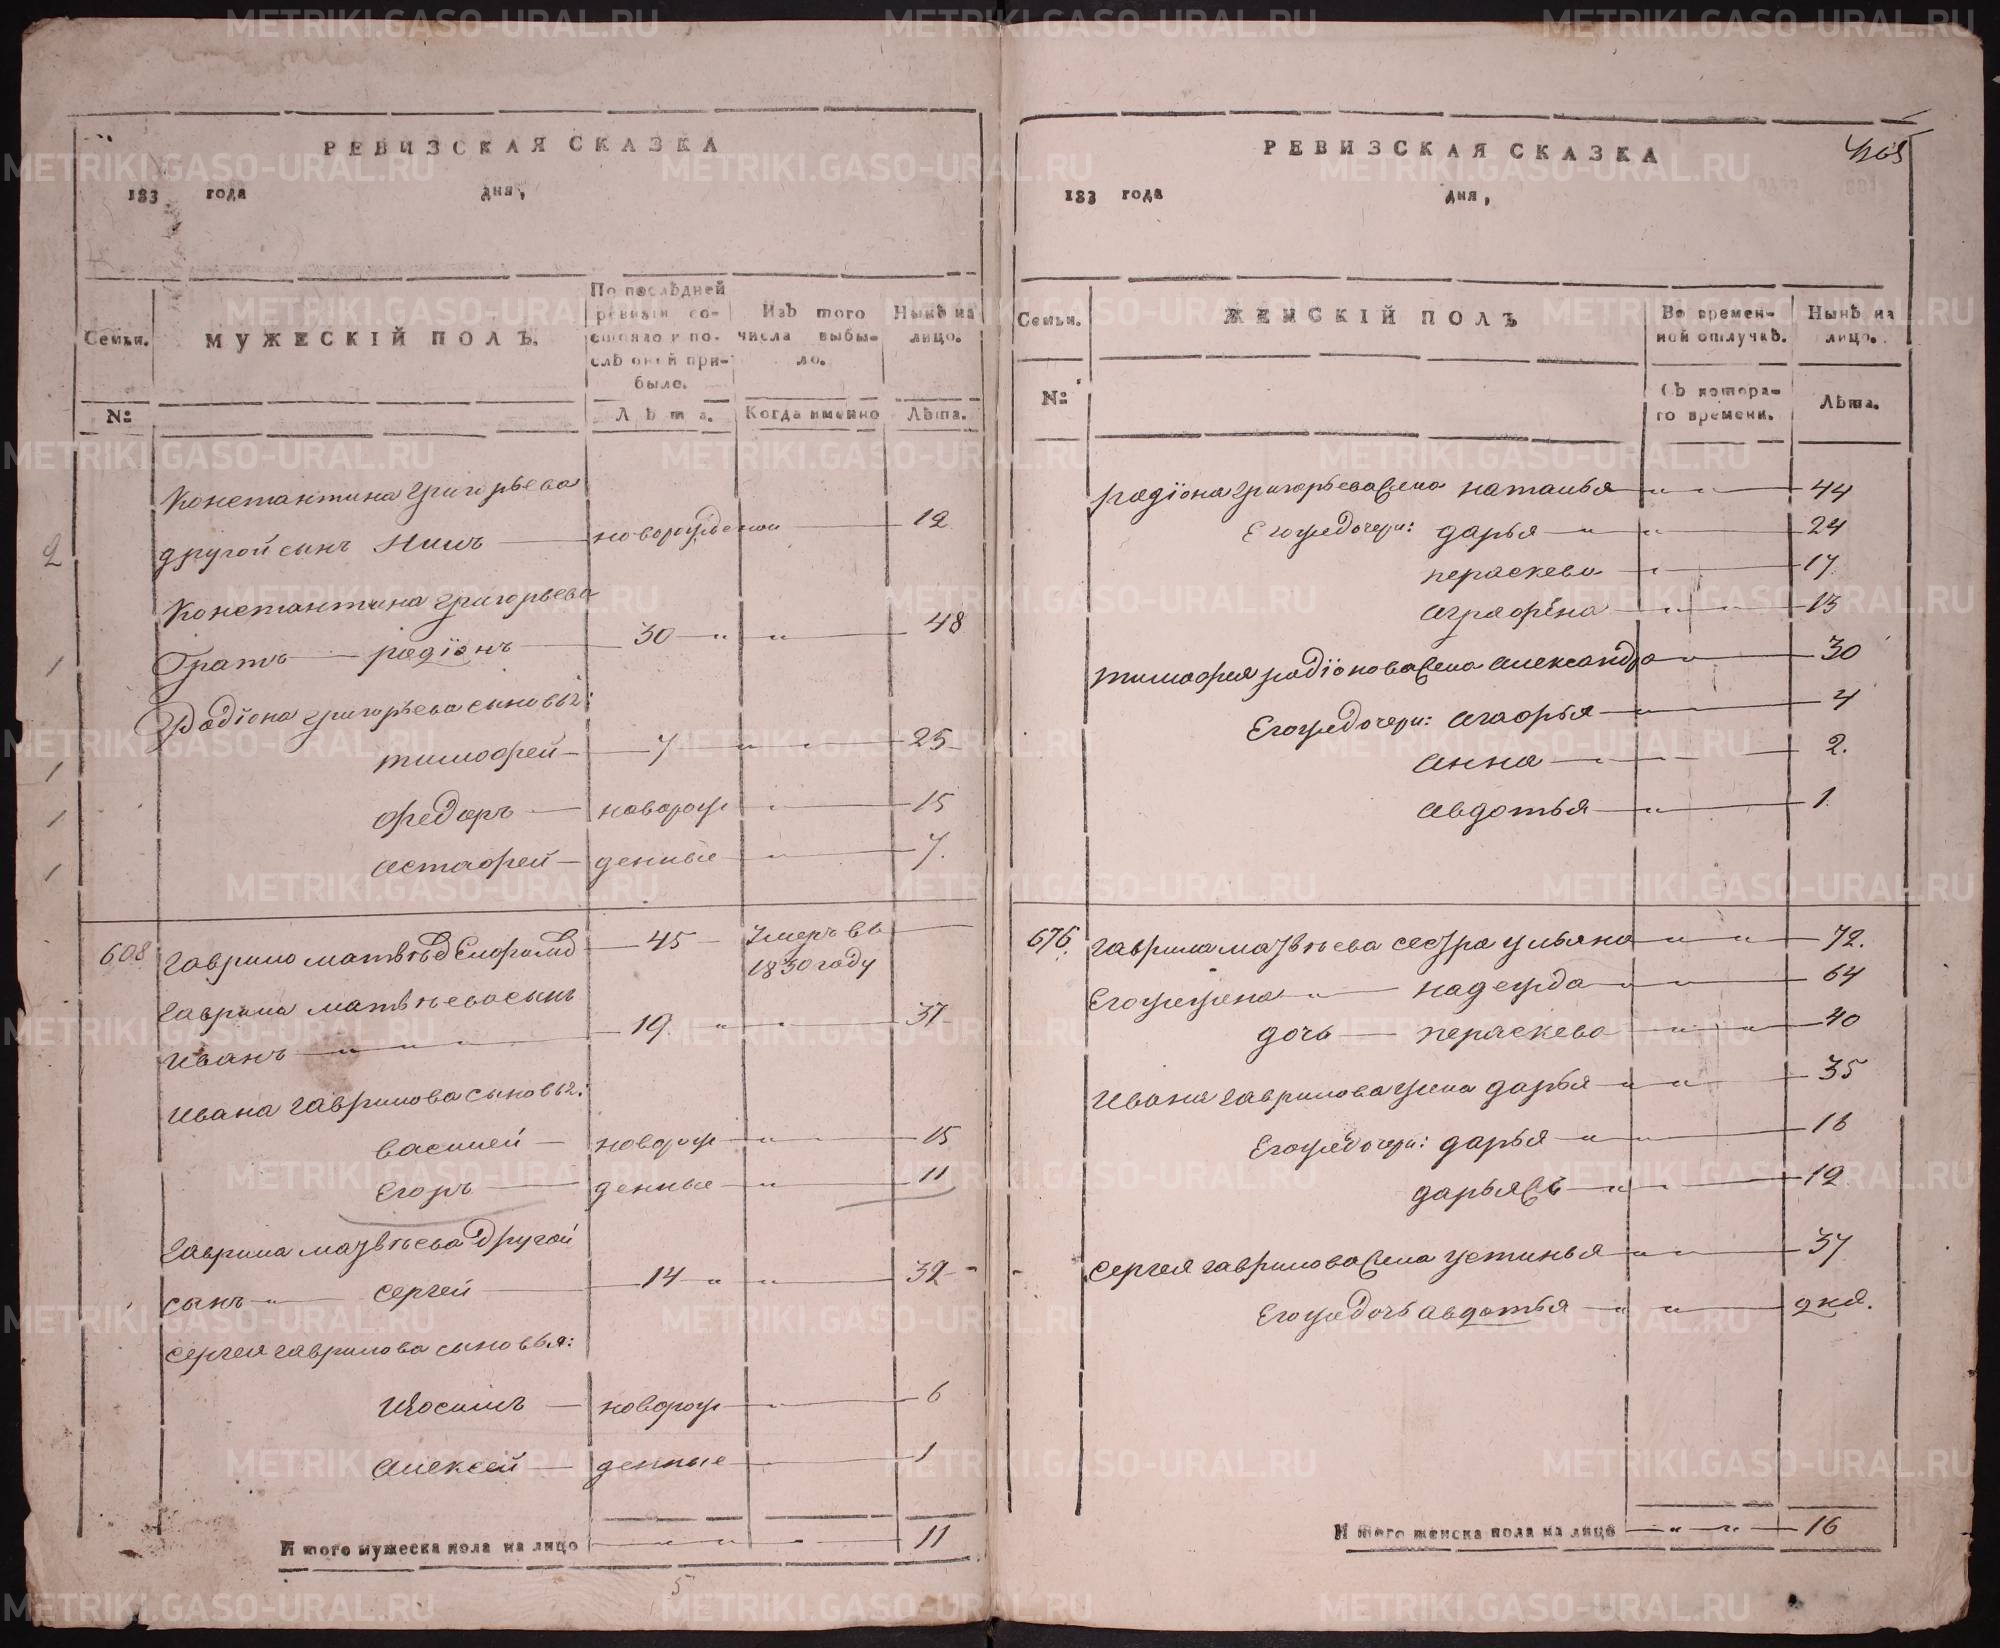 РЕВИЗСКАЯ СКАЗКА
183 года дня,
Семьи.
МУЖЕСКІЙ ПОЛЪ.
По послѣдней ревизіи состояло и послѣ оной прибыло.
Изъ того числа выбыло.
Нынѣ на лицо.
№
Лѣта.
Когда именно
Лѣта.
Константина Григорьева
другой сынъ новорожденой 12
2
Константина Григорьева
братъ радіонъ 30 " " 48
1
Радіона Григорьева сыновья:
тимофей 7 " " 25
1
федоръ новорож " 15
1
астафей денные " 7.
1
608 Гаврило Матвѣевъ 45 Умеръ въ
1830 году
Гаврила матвѣева сынъ
Иванъ " " " 19. " " 37
Ивана гаврилова сыновья:
василей новорож " 15
Егоръ денные " 11
Гаврила матвѣева другой
сынъ " сергей 14 " " 32
сергея гаврилова сыновья:
новорож " 6
алексей денные " 1
И того мужеска пола на лицо " " " 11
5
РЕВИЗСКАЯ СКАЗКА
465
183 года дня,
Семьи.
ЖЕНСКІЙ ПОЛЪ
Во временной отлучкѣ.
Нынѣ на лицо.
№
Съ котораго времени.
Лѣта.
радіона григорьева жена наталья " " 44
Егожедочери: дарья " " 24
пераскева " 17.
аграфена " " 13
тимофея радіонова жена александра " 30
Егожедочери: агафья " " 4
анна " " 2.
авдотья " 1.
676. гаврила матвѣева сестра ульяна " " 72.
Егожежена " надежда " " 64
дочь пераскева " " 40
Ивана гаврилова жена дарья " " 35
Егожедочери: дарья " " 16
дарья " " 12
сергея гаврилова жена устинья " " 37
Егожедочь авдотья " " дня.
И того женска пола на лицо " " 16
METRIKI.GASO-URAL.RU